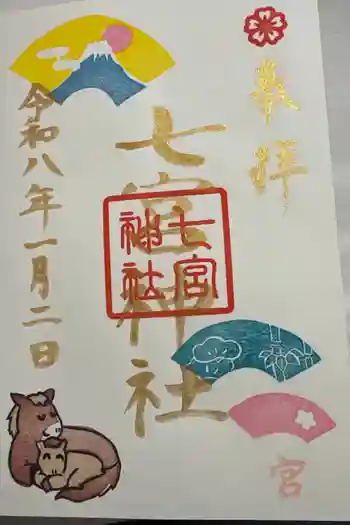 奉拝
七宮神社
七宮
神社
令和八年一月二日
宮